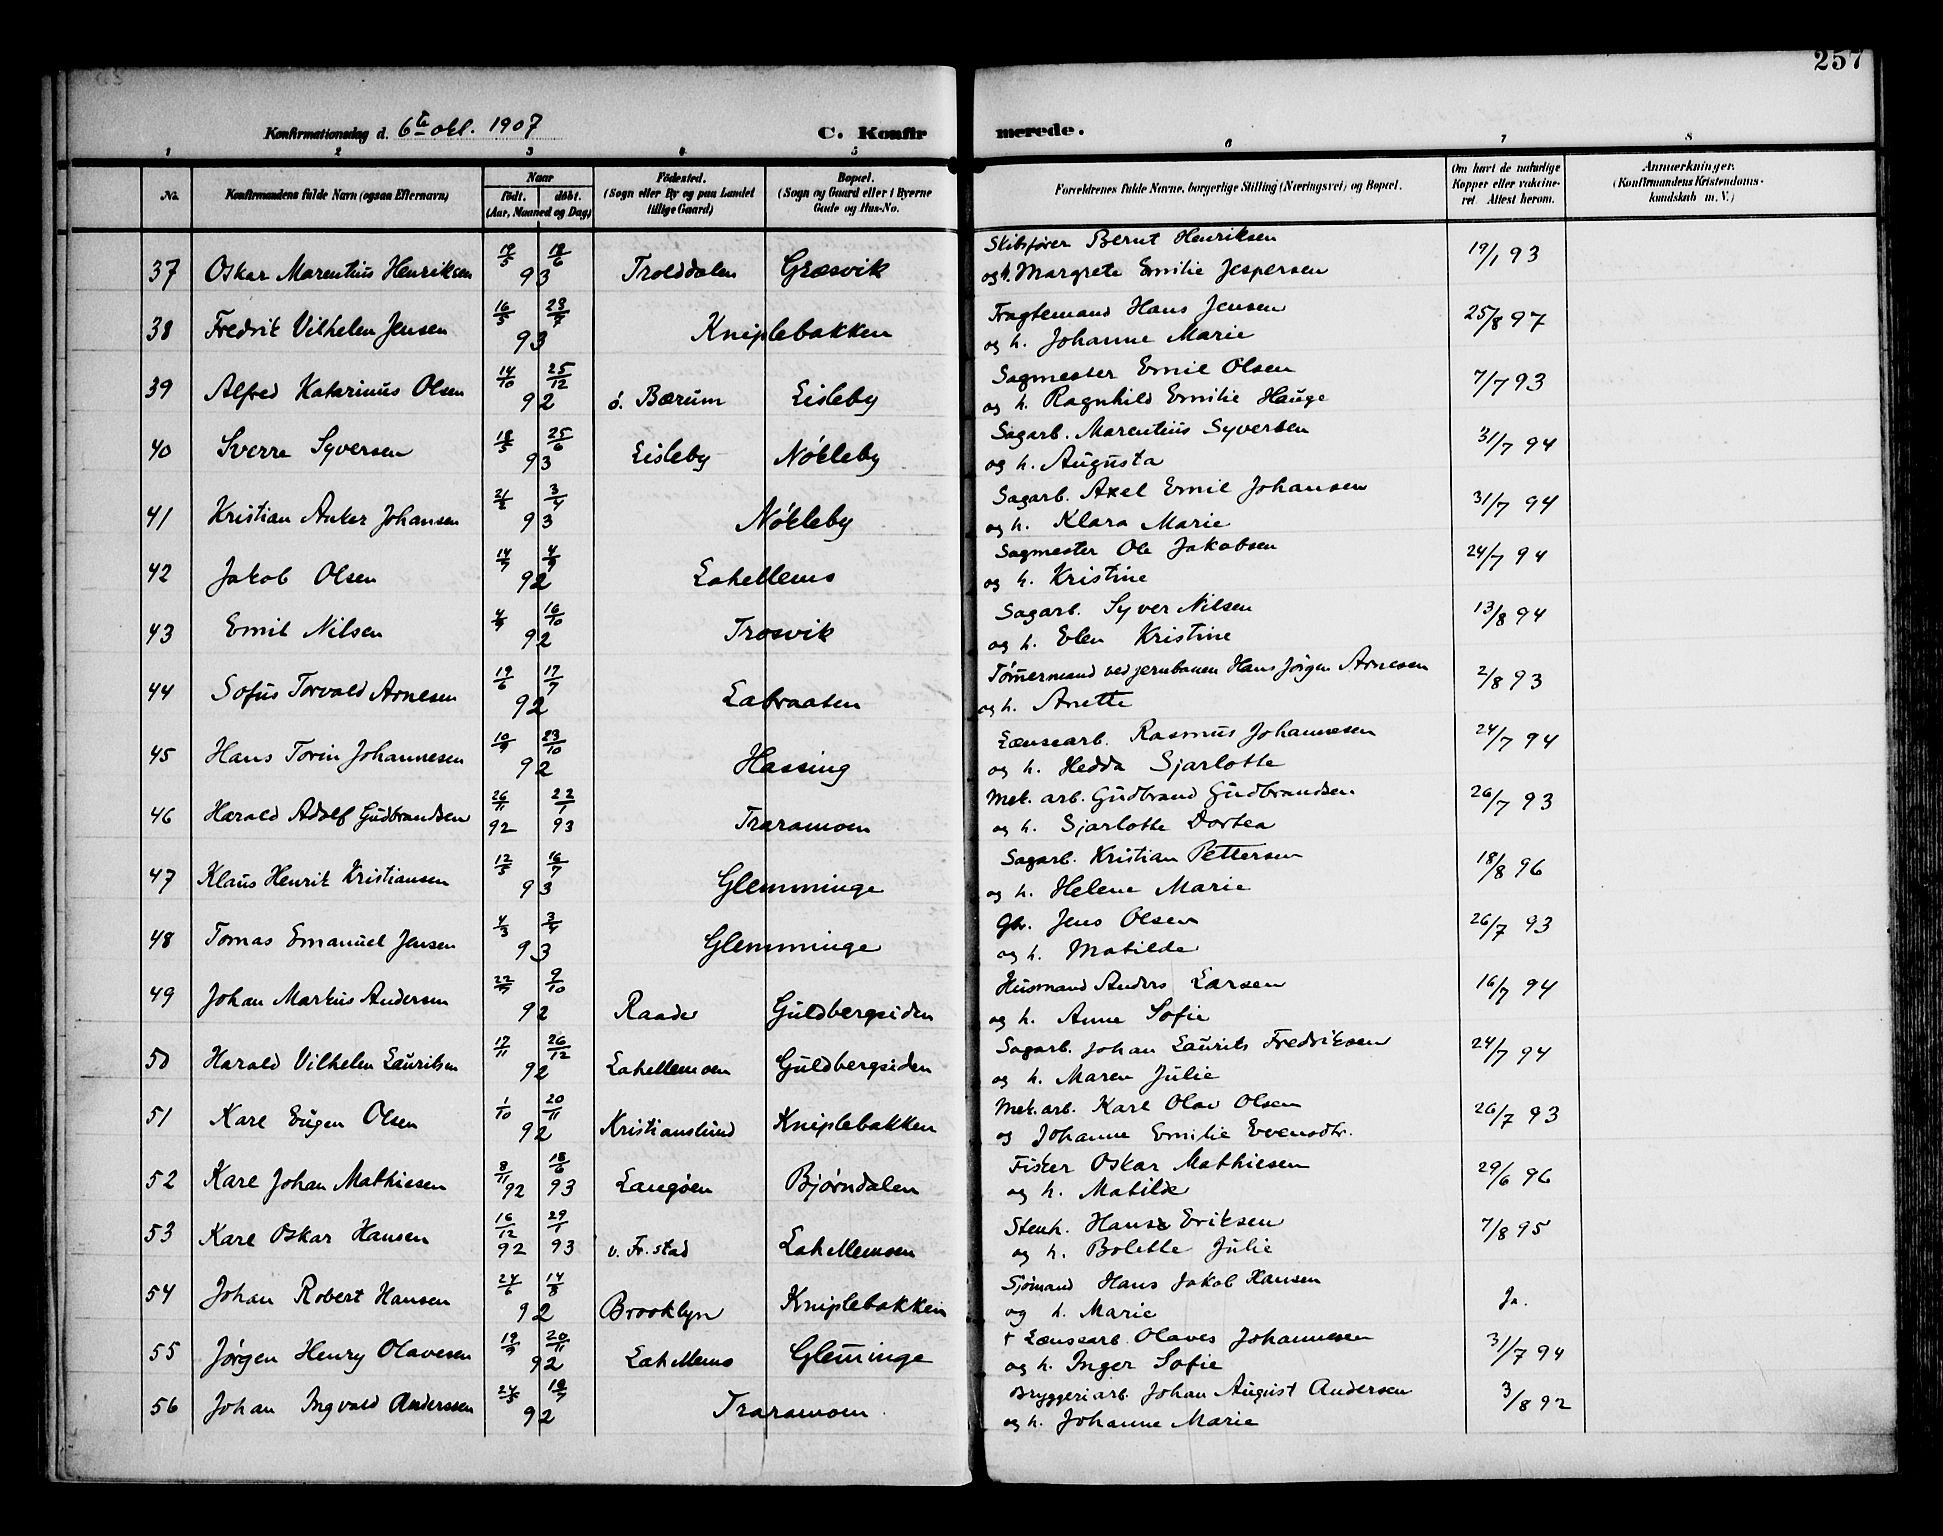 257
Konfirmationsdag d. 6te okt. 1907 C. Konfirmerede.
1 2 3 4 5 6 7 8
No.
Konfirmandens fulde Navn (ogsaa Efternavn)
Naar
født. døbt.
(Aar, Maaned og Dag)
Fødested.
(Sogn eller By og paa Landet
tillige Gaard)
Bopæl.
(Sogn og Gaard eller i Byerne
Gade og Hus-No.
Forældrenes fulde Navne, borgerlige Stilling (Næringsvei) og Bopæl.
Om havt de naturlige
Kopper eller vaccine-
ret Attest herom.
Anmærkninger.
(Konfirmandens Kristendoms-
kundskab m. V.)
37 Oskar Marentius Henriksen 19/5 18/6 93 Trolddalen Græsvik Skibsfører Bernt Henriksen 19/1 93
og h. Margrete Emilie Jespersen
38 Fredrik Vilhelm Jensen 16/5 23/7 93 Kniplebakken Fragtemand Hans Jensen 25/8 97
og h. Johanne Marie
39 Alfred Katarinus Olsen 14/10 25/12 92 ö. Bærum Lisleby Sagmester Emil Olsen 7/7 93
og h. Ragnhild Emilie Hauge
40 Sverre Syversen 18/5 25/6 93 Lisleby Nökleby Sagarb. Marentius Syversen 31/7 94
og h. Augusta
41 Kristian Anker Johansen 21/2 3/4 93 Nökleby Sagarb. Axel Emil Johansen 31/7 94
og h. Klara Marie
42 Jakob Olsen 14/7 4/9 92 Lahellems Sagmester Ole Jakobsen 24/7 94
og h. Kristine
43 Emil Nilsen 4/9 16/10 92 Trosvik Sagarb. Syver Nilsen 13/8 94
og h. Elen Kristine
44 Sofus Torvald Arnesen 19/6 17/7 92 Labraaten Tömermand ved jernbanen Hans Jörgen Arnesen 2/8 93
og h. Anette
45 Hans Torin Johannesen 10/9 23/10 92 Hassing Lænsearb. Rasmus Johannesen 24/7 94
og h. Hedda Sjarlotte
46 Harald Adolf Gudbrandsen 26/11 92 22/1 93 Traramoen Mek. arb. Gudbrand Gudbrandsen 26/7 93
og h. Sjarlotte Dortea
47 Klaus Henrik Kristiansen 12/5 16/7 93 Glemminge Sagarb. Kristian Pettersen 18/8 96
og h. Helene Marie
48 Tomas Emanuel Jensen 4/3 3/4 93 Glemminge Gbr. Jens Olsen 26/7 93
og h. Matilde
49 Johan Markus Andersen 22/7 9/10 92 Raade Guldbergsiden Husmand Anders Larsen 16/7 94
og h. Anne Sofie
50 Harald Vilhelm Lauritsen 17/11 26/12 92 Lahellemoen Guldbergsiden Sagarb. Johan Laurits Fredriksen 24/7 94
og h. Maren Julie
51 Karl Eugen Olsen 1/10 20/11 92 Kristianslund Kniplebakken Mek. arb. Karl Olav Olsen 26/7 93
og Johanne Emilie Evensdtr.
52 Karl Johan Mathiesen 8/11 92 18/6 93 Langöen Bjørndalen Fisker Oskar Mathiesen 29/6 96
og h. Matilde
53 Karl Oskar Hansen 16/12 92 29/1 93 v. Fr.stad Lahellemoen Stenh. Hans Eriksen 7/8 95
og h. Bolette Julie
54 Johan Robert Hansen 24/6 14/8 92 Brooklyn Kniplebakken Sjömand Hans Jakob Hansen Ja.
og h. Marie
55 Jørgen Henry Olavesen 19/9 20/11 92 Lahellems Glemminge † Lænsearb. Olaves Johannesen 31/7 94
og h. Inger Sofie
56 Johan Ingvald Anderssen 24/5 18/7 92 Traramoen Bryggeriarb. Johan August Andersen 3/8 92
og h. Johanne Marie